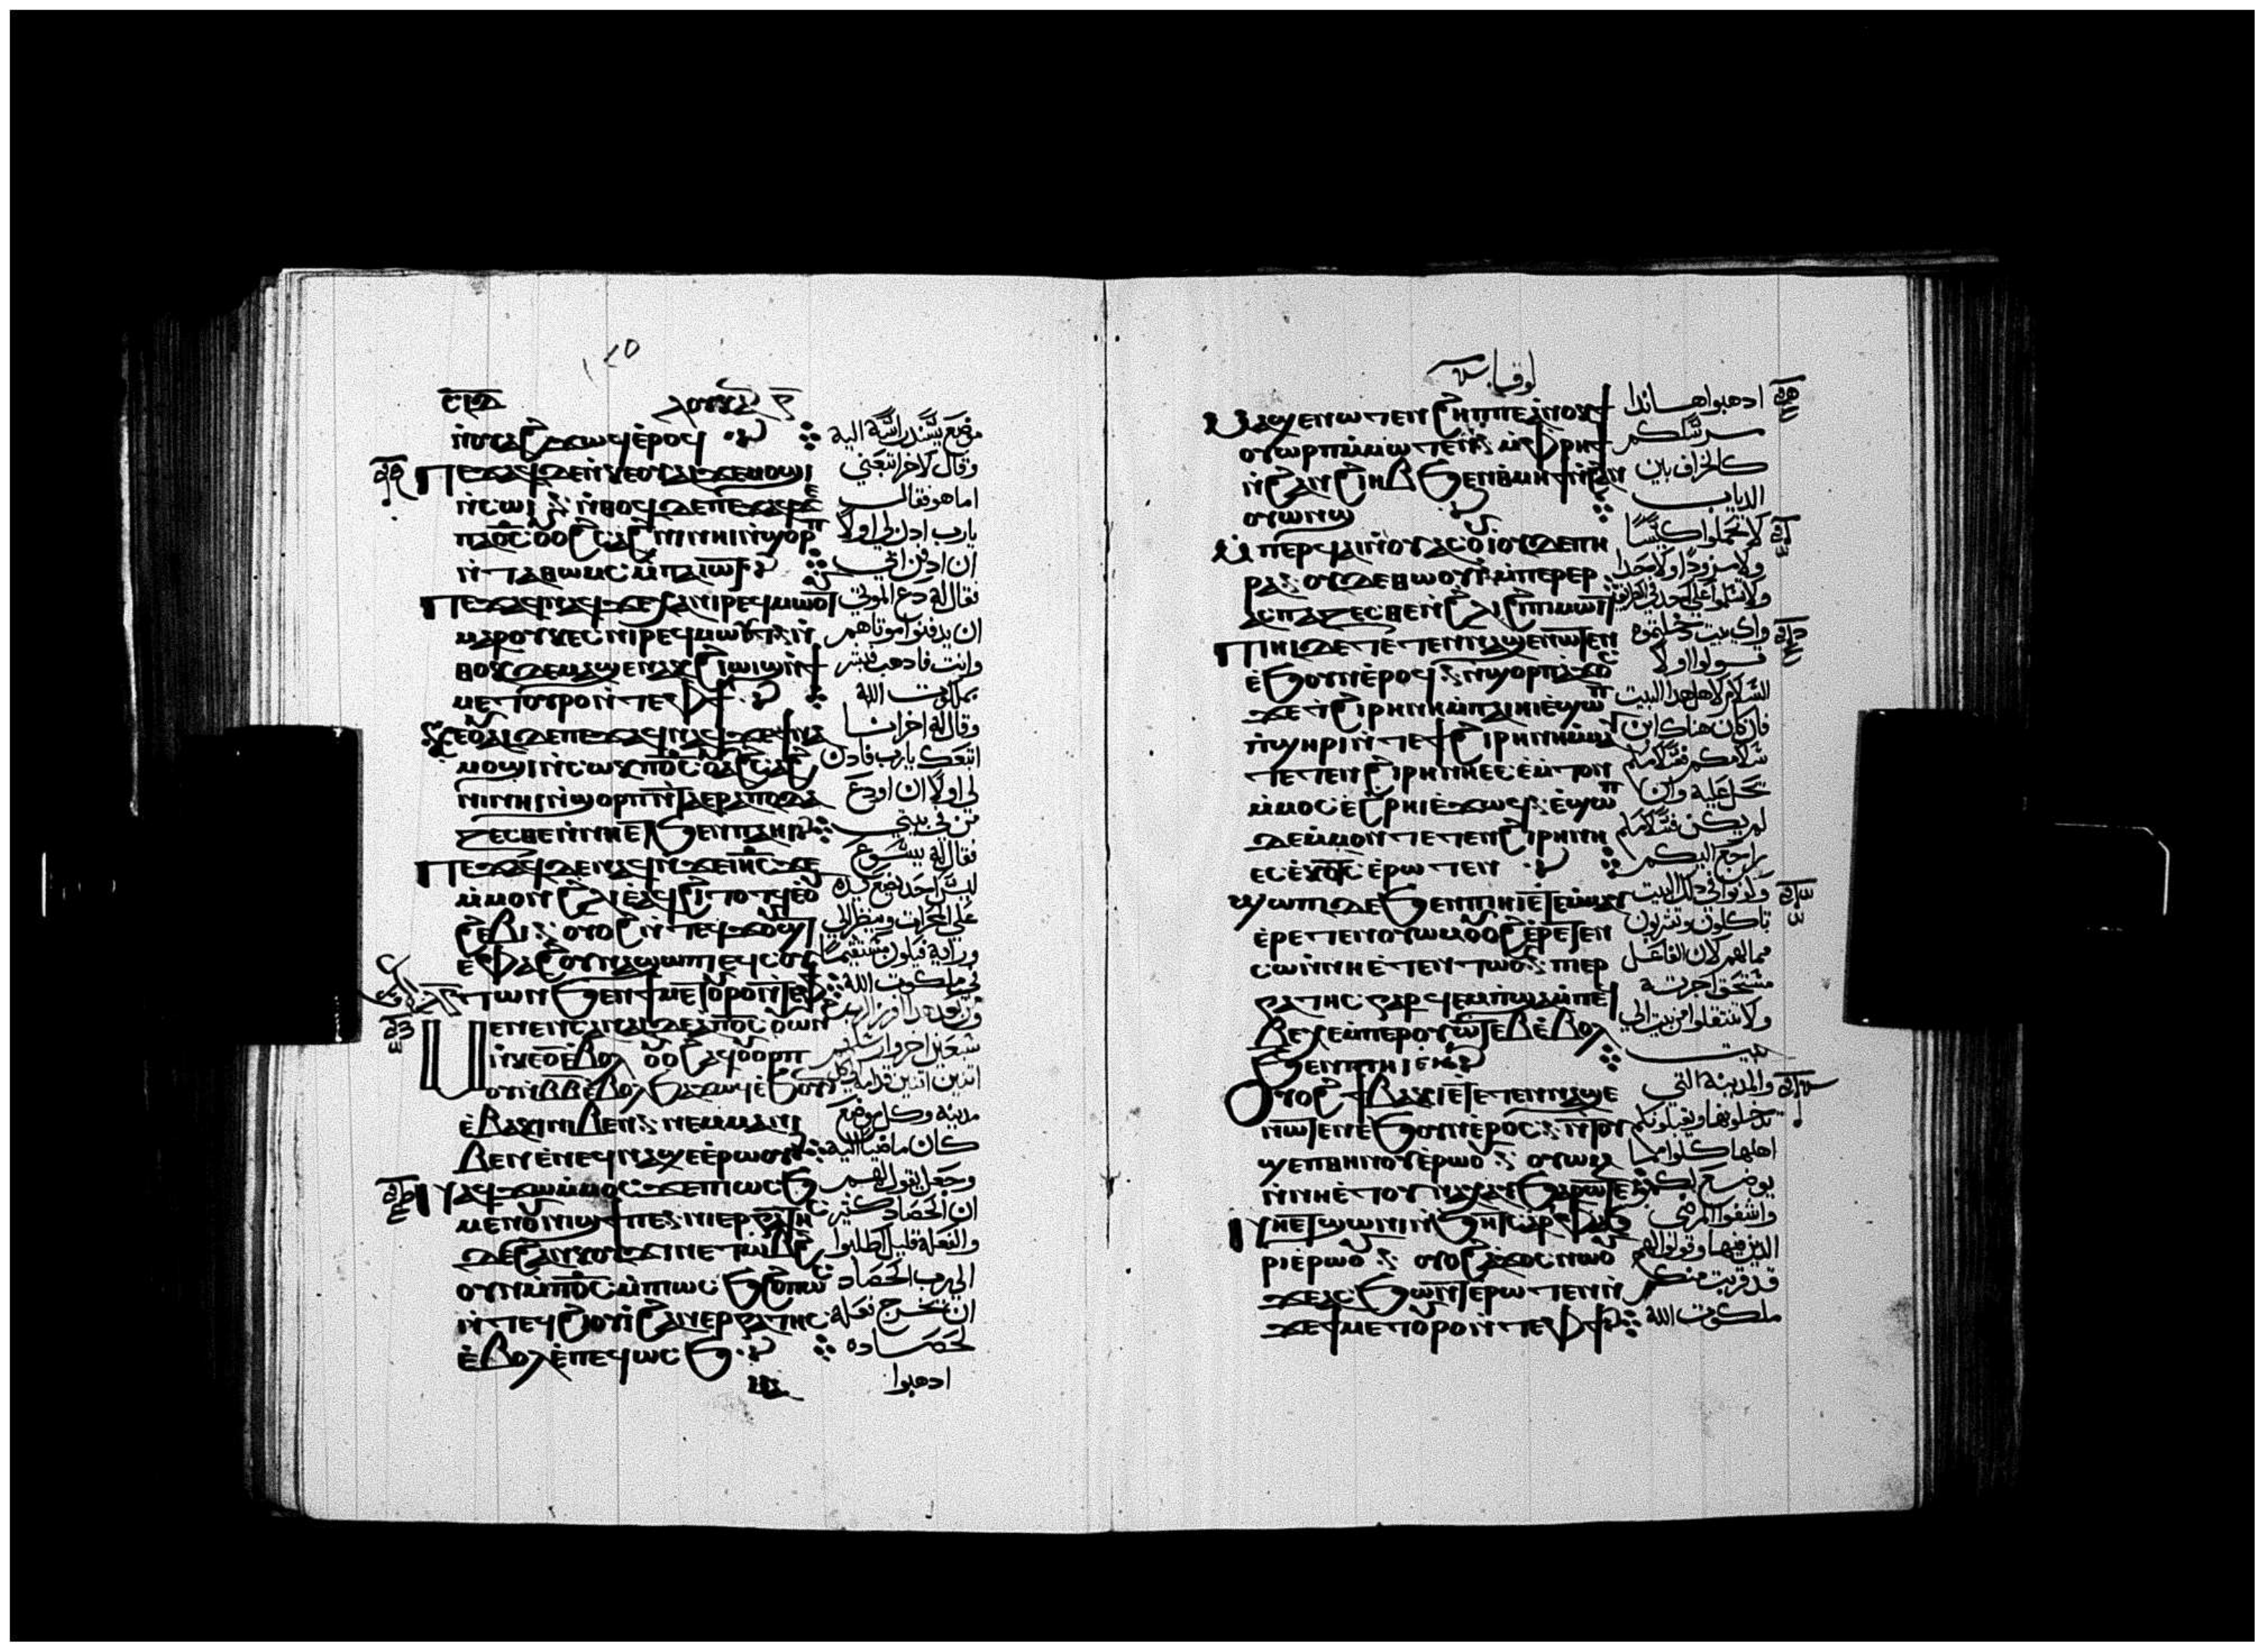 ⲥⲝⲇ
ⲗⲟⲩⲕⲁⲛ
ⲛ̀ⲟⲩⲁϩϫⲱϥ ⲉ̀ⲣⲟϥ
ⲡⲉϫⲁϥ ⲇⲉ ⲛ̀ⲕⲉⲟⲩⲁⲓ ϫⲉ ⲙⲟϣⲓ
ⲛ̀ⲥⲱⲓ ⲛ̀ⲑⲟϥ ⲇⲉ ⲡⲉϫⲁϥ ϫⲉ
ⲡⲁⲟ̅ⲥ̅ ⲟⲩⲁϩⲥⲁϩⲛⲓ ⲛⲏⲓ ⲛ̀ϣⲟⲣⲡ
ⲛ̀ⲧⲁⲑⲱⲙⲥ ⲙ̀ⲡⲁⲓⲱⲧ
ⲡⲉϫⲁϥ ⲛⲁϥ ϫⲉ ⲭⲁ ⲛⲓⲣⲉϥⲙⲱⲟⲩⲧ
ⲙⲁⲣⲟⲩⲕⲉⲥ ⲛⲓⲣⲉϥⲙⲱⲟⲩⲧ ⲛ̀
ⲑⲟⲕ ⲇⲉ ⲙⲁϣⲉⲛⲁⲕ ϩⲓⲱⲓϣ ⲛ̀ϯ
ⲙⲉⲧⲟⲩⲣⲟ ⲛ̀ⲧⲉ ⲫϯ
ⲕⲉⲟⲩⲁⲓ ⲇⲉ ⲡⲉϫⲁϥ ⲛⲁϥ ϫⲉ ϯⲛⲁ
ⲙⲟϣⲓ ⲛ̀ⲥⲱⲕ ⲡⲟ̅ⲥ̅ ⲟⲩⲁϩⲥⲁϩ
ⲛⲓ ⲛⲏⲓ ⲛ̀ϣⲟⲣⲡ ⲛ̀ⲧⲁⲉⲣⲁⲡⲟⲇⲁ
ⲍⲉⲥⲑⲉ ⲛ̀ⲛⲏ ⲉⲧϧⲉⲛ ⲡⲁⲏⲓ
ⲡⲉϫⲁϥ ⲇⲉ ⲛⲁϥ ⲛ̀ϫⲉ ⲓⲏ̅ⲥ̅ ϫⲉ
ⲙ̀ⲙⲟⲛ ϩⲗⲓ ⲉ̀ⲁϥϩⲓ ⲧⲟⲧϥ ⲉⲟⲩ
ϩⲉⲃⲓ ⲟⲩⲟϩ ⲛ̀ⲧⲉϥϫⲟⲩϣⲧ
ⲉⲫⲁϩⲟⲩ ⲛⲁϣⲱⲡⲓ ⲉϥⲥⲟⲩ
ⲧⲱⲛ ϧⲉⲛ ϯⲙⲉⲧⲟⲩⲣⲟ ⲛ̀ⲧⲉ ⲫϯ
ⲙⲉⲛⲉⲛⲥⲁ ⲛⲁⲓ ⲇⲉ ⲁ ⲡⲟ̅ⲥ̅ ⲟⲩⲱⲛϩ
ⲛ̀ⲕⲉⲟ̅ ⲉ̀ⲃⲟⲗ ⲟⲩⲟϩ ⲁϥⲟⲩⲟⲣⲡ
ⲟⲩ ⲛ̀ⲃ̅ⲃ̅ ⲉ̀ⲃⲟⲗ ϧⲁϫⲱϥ ⲉ̀ϧⲟⲩⲛ
ⲉ̀ⲃⲁⲕⲓ ⲛⲓⲃⲉⲛ ⲛⲉⲙ ⲙⲁ ⲛⲓ
ⲃⲉⲛ ⲉ̀ⲛⲉϥⲛⲁϣⲉ ⲉ̀ⲣⲱⲟⲩ
ⲛⲁϥϫⲱ ⲙ̀ⲙⲟⲥ ϫⲉ ⲡⲓⲱⲥϧ
ⲙⲉⲛ ⲟⲩⲛⲓϣϯ ⲡⲉ ⲛⲓⲉⲣⲅⲁⲧⲏⲥ
ⲇⲉ ϩⲁⲛⲕⲟⲩϫⲓ ⲛⲉ ⲧⲱⲃϩ
ⲟⲩⲛ ⲙ̀ⲡⲟ̅ⲥ̅ ⲙ̀ⲡⲓⲱⲥϧ ϩⲟⲡⲱⲥ
ⲛ̀ⲧⲉϥϩⲓⲟⲩⲓ ⲛ̀ϩⲁⲛⲉⲣⲅⲁⲧⲏⲥ
ⲉ̀ⲃⲟⲗ ⲉ̀ⲡⲉϥⲱⲥϧ
موضع يسند راسه اليه
وقال لاخر اتبعني
اما هو فقال
يارب ادن لي اولا
ان ادفن ابي
فقال له دع الموتى
ان يدفنوا موتاهم
وانت فادهب فبشر
بملكوت الله
وقال له اخر انا
اتبعك يارب فادن
لي اولا ان اودع
من في بيتي
فقال له يسوع
ليس احد يضع يده
على المحرات وينظر الى
ورايه فيكون مستقيما
في ملكوت الله
ومن بعد هدا افرز الرب
سبعين اخر وارسلهم
اتنين اتنين قدامه الى كل
مدينة وكل موضع
كان ماضيا اليه
وجعل يقول لهم
ان الحصاد كتير
والفعله قليل اطلبوا
الى رب الحصاد
ان يخرج فعله
لحصاده
ادهبوا
لوقا
ⲙⲁϣⲉⲛⲱⲧⲉⲛ ϩⲏⲡⲡⲉ ⲁ̀ⲛⲟⲕ ϯ
ⲟⲩⲱⲣⲡ ⲙ̀ⲙⲱⲧⲉⲛ ⲙ̀ⲫⲣⲏϯ
ⲛ̀ϩⲁⲛϩⲓⲏⲃ ϧⲉⲛ ⲑⲙⲏϯ ⲛ̀ϩⲁⲛ
ⲟⲩⲱⲛϣ
ⲙ̀ⲡⲉⲣϥⲁⲓ ⲛ̀ⲟⲩⲁⲥⲟⲩⲓ ⲟⲩⲇⲉ ⲡⲏ
ⲣⲁ ⲟⲩⲇⲉ ⲑⲱⲟⲩⲓ ⲙ̀ⲡⲉⲣⲉⲣ
ⲁⲥⲡⲁⲍⲉⲥⲑⲉ ⲛ̀ϩⲗⲓ ϩⲓ ⲡⲓⲙⲱⲓⲧ
ⲡⲓⲏⲓ ⲇⲉ ⲉ̀ⲧⲉⲧⲉⲛⲛⲁϣⲉⲛⲱⲧⲉⲛ
ⲉ̀ϧⲟⲩⲛ ⲉ̀ⲣⲟϥ ⲛ̀ϣⲟⲣⲡ ⲁϫⲟⲥ
ϫⲉ ⲧϩⲓⲣⲏⲛⲏ ⲙ̀ⲡⲁⲓⲏⲓ ⲉ̀ϣⲱⲡ
ⲛ̀ϣⲏⲣⲓ ⲛ̀ⲧⲉ ϯϩⲓⲣⲏⲛⲏ ⲙ̀ⲙⲁⲩ
ⲧⲉⲧⲉⲛϩⲓⲣⲏⲛⲏ ⲉⲥⲉ̀ⲙ̀ⲧⲟⲛ
ⲙ̀ⲙⲟⲥ ⲉ̀ϩⲣⲏⲓ ⲉ̀ϫⲱϥ ⲉ̀ϣⲱⲡ
ⲇⲉ ⲙ̀ⲙⲟⲛ ⲧⲉⲧⲉⲛϩⲓⲣⲏⲛⲏ
ⲉⲥⲉ̀ⲕⲟⲧⲥ ⲉ̀ⲣⲱⲧⲉⲛ
ϣⲱⲡⲓ ⲇⲉ ϧⲉⲛ ⲡⲓⲏⲓ ⲉ̀ⲧⲉⲙ̀ⲙⲁⲩ
ⲉ̀ⲣⲉⲧⲉⲛⲟⲩⲱⲙ ⲟⲩⲟϩ ⲉ̀ⲣⲉⲧⲉⲛ
ⲥⲱ ⲛ̀ⲛⲏ ⲉ̀ⲧⲉⲛⲧⲱⲟⲩ ⲡⲓⲉⲣ
ⲅⲁⲧⲏⲥ ⲅⲁⲣ ϥⲉⲙⲡϣⲁ ⲙ̀ⲡⲉϥ
ⲃⲉⲭⲉ ⲙ̀ⲡⲉⲣⲟⲩⲱⲧⲉⲃ ⲉ̀ⲃⲟⲗ
ϧⲉⲛ ⲡⲓⲏⲓ ⲉ̀ⲏⲓ
ⲟⲩⲟϩ ϯⲃⲁⲕⲓ ⲉ̀ⲧⲉⲧⲉⲛⲛⲁϣⲉ
ⲛⲱⲧⲉⲛ ⲉ̀ϧⲟⲩⲛ ⲉ̀ⲣⲟⲥ ⲛ̀ⲧⲟⲩ
ϣⲉⲡ ⲑⲏⲛⲟⲩ ⲉ̀ⲣⲱⲟⲩ ⲟⲩⲱⲙ
ⲛ̀ⲛⲏ ⲉ̀ⲧⲟⲩⲛⲁⲭⲁⲩ ϧⲁⲣⲱⲧⲉⲛ
ⲛⲏ ⲉⲧϣⲱⲛⲓ ⲛ̀ϧⲏⲧⲥ ⲁⲣⲓⲫⲁϧ
ⲣⲓ ⲉ̀ⲣⲱⲟⲩ ⲟⲩⲟϩ ⲁϫⲟⲥ ⲛⲱⲟⲩ
ϫⲉ ⲁⲥϧⲱⲛⲧ ⲉⲣⲱⲧⲉⲛ ⲛ̀
ϫⲉ ϯⲙⲉⲧⲟⲩⲣⲟ ⲛ̀ⲧⲉ ⲫϯ
ادهبوا هاندا
مرسلكم
كالخراف بين
الدياب
لا تحملوا كيسا
ولا مزودا ولا حدا
ولا تسلموا على احد في الطريق
واي بيت دخلتموه
فقولوا اولا
السلام لاهل هدا البيت
فان كان هناك ابن
سلامكم فسلامكم
يحل عليه وان
لم يكن فسلامكم
يراجع اليكم
وكونوا في دلك البيت
تاكلون وتشربون
مما لهم لان الفاعل
مستحق اجرته
ولا تنتقلوا من بيت الى
بيت
والمدينة التي
تدخلونها ويقبلونكم
اهلها كلوا مما
يوضع لكم
واشفوا المرضى
الدين فيها وقولوا لهم
قد قربت منكم
ملكوت الله